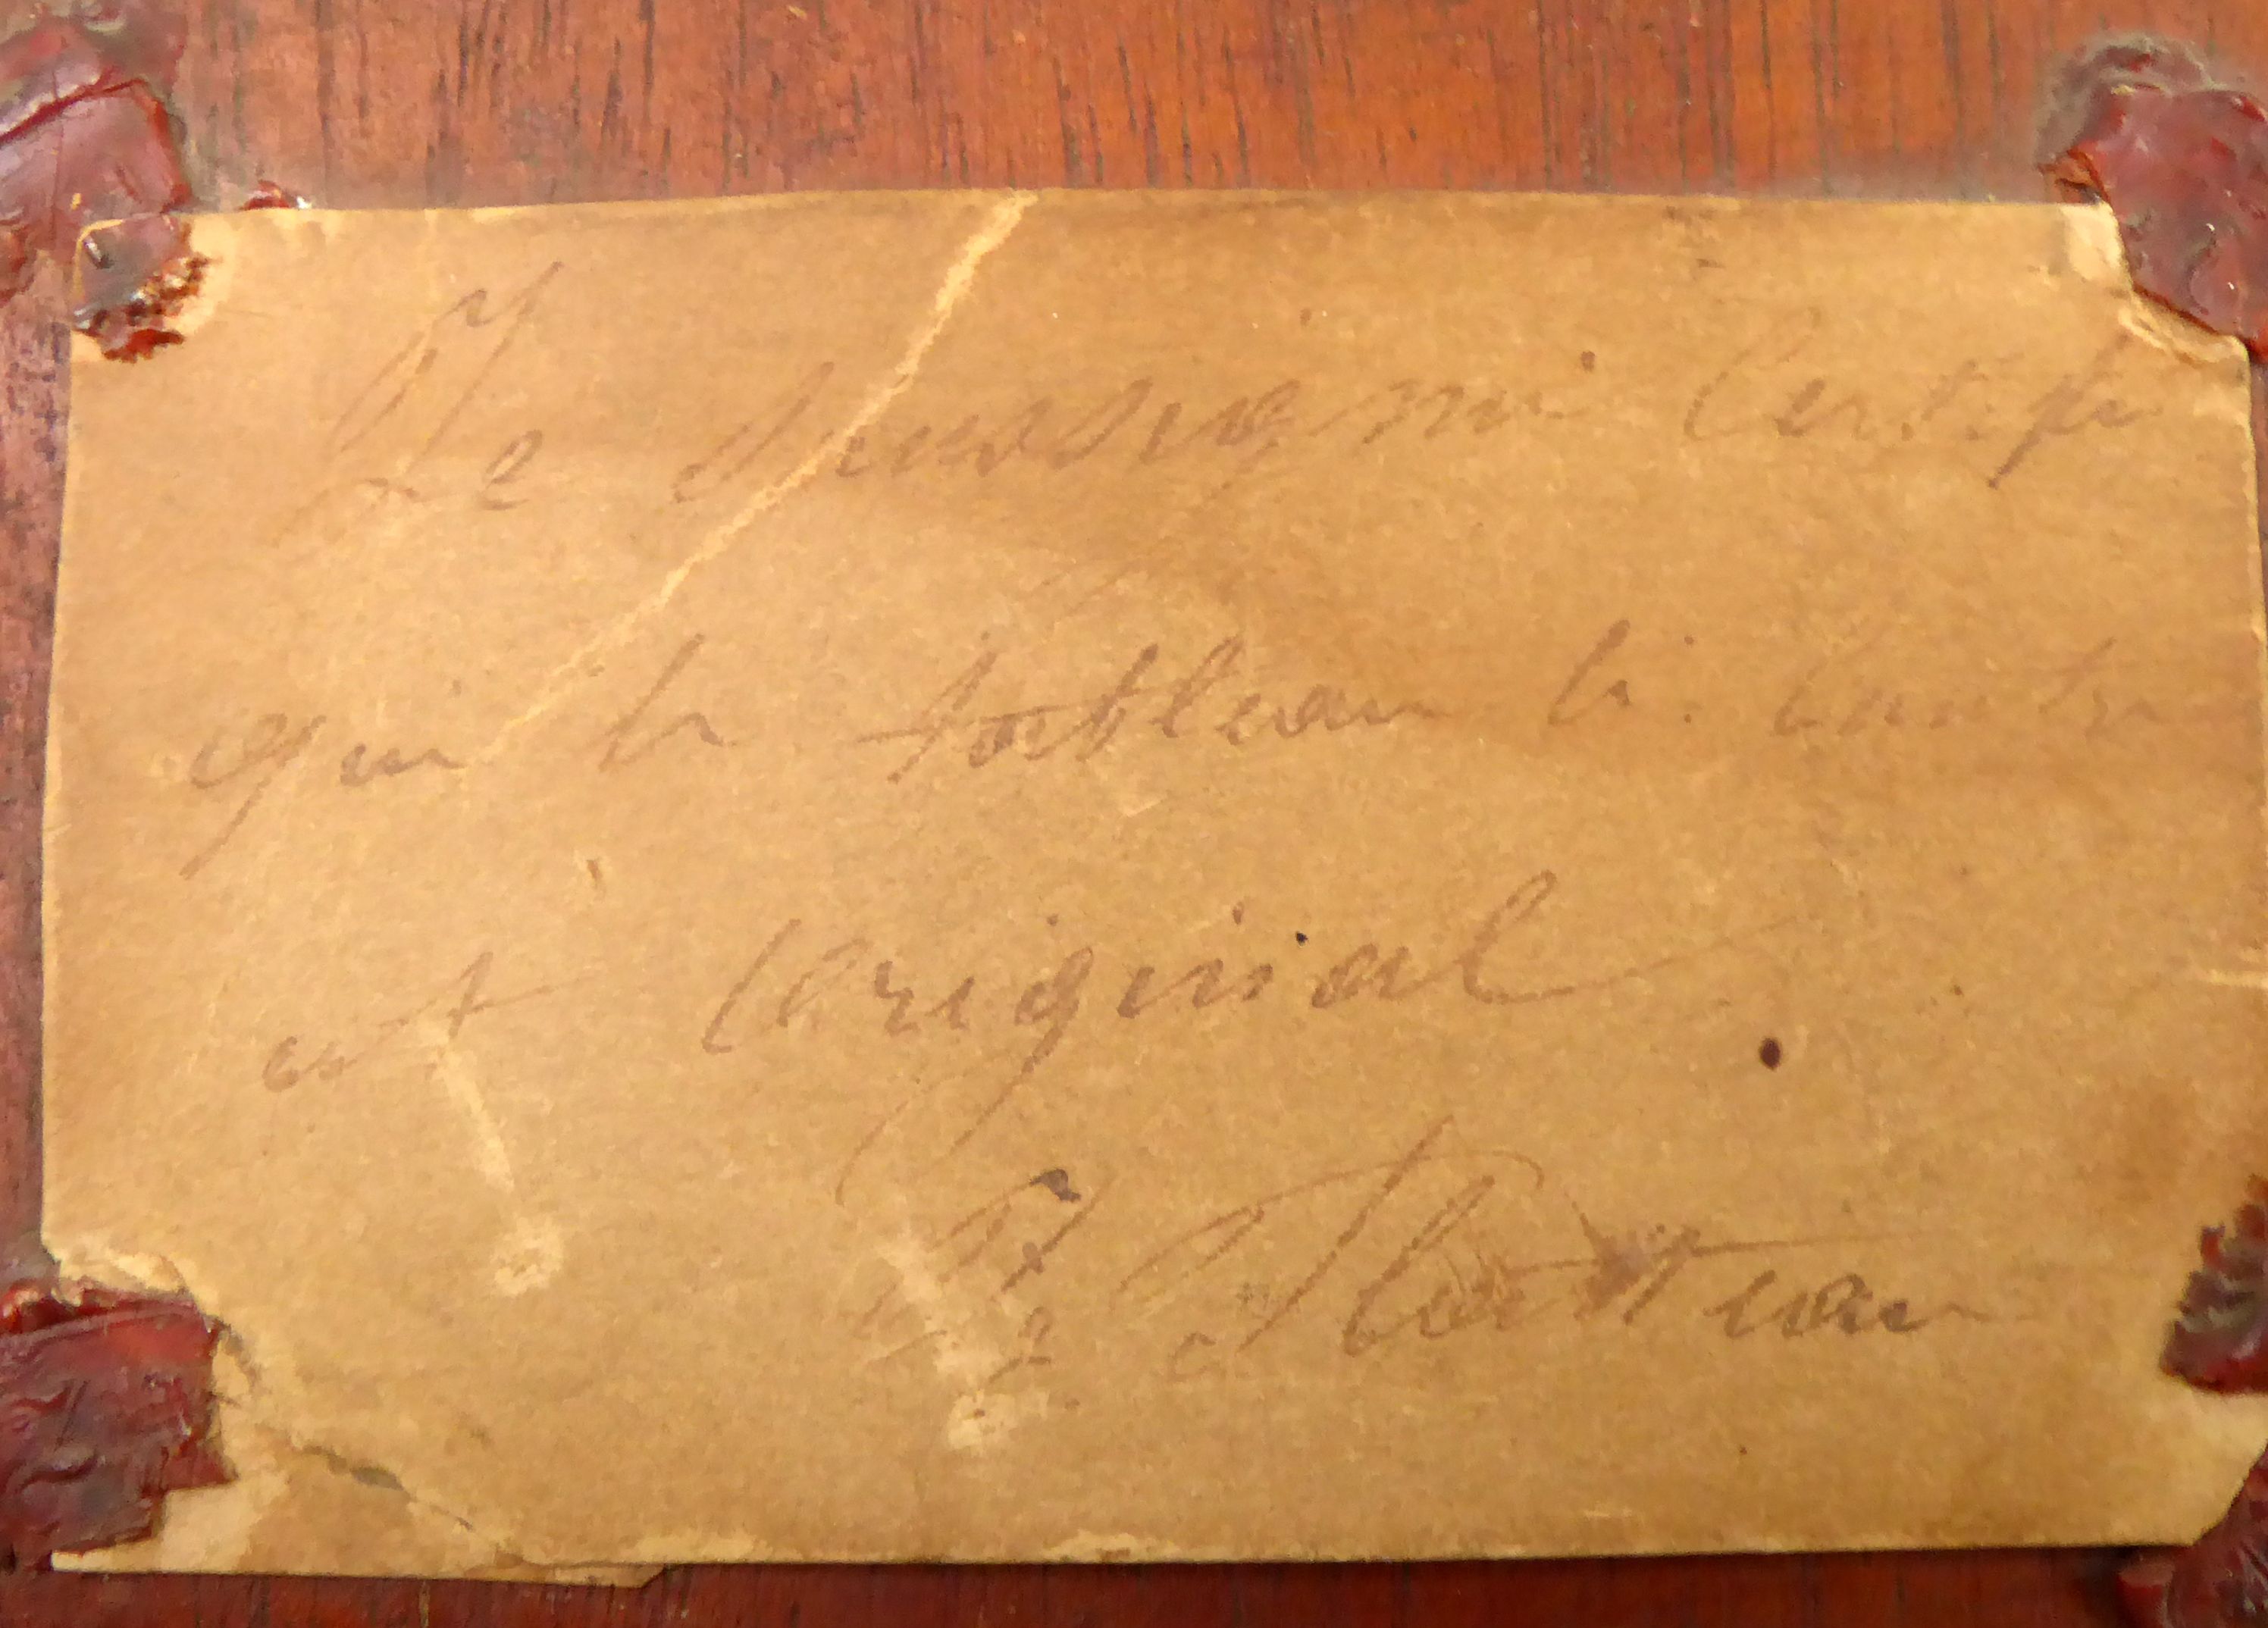 Le soussigné Certifie
que le tableau ci. contre
est Original